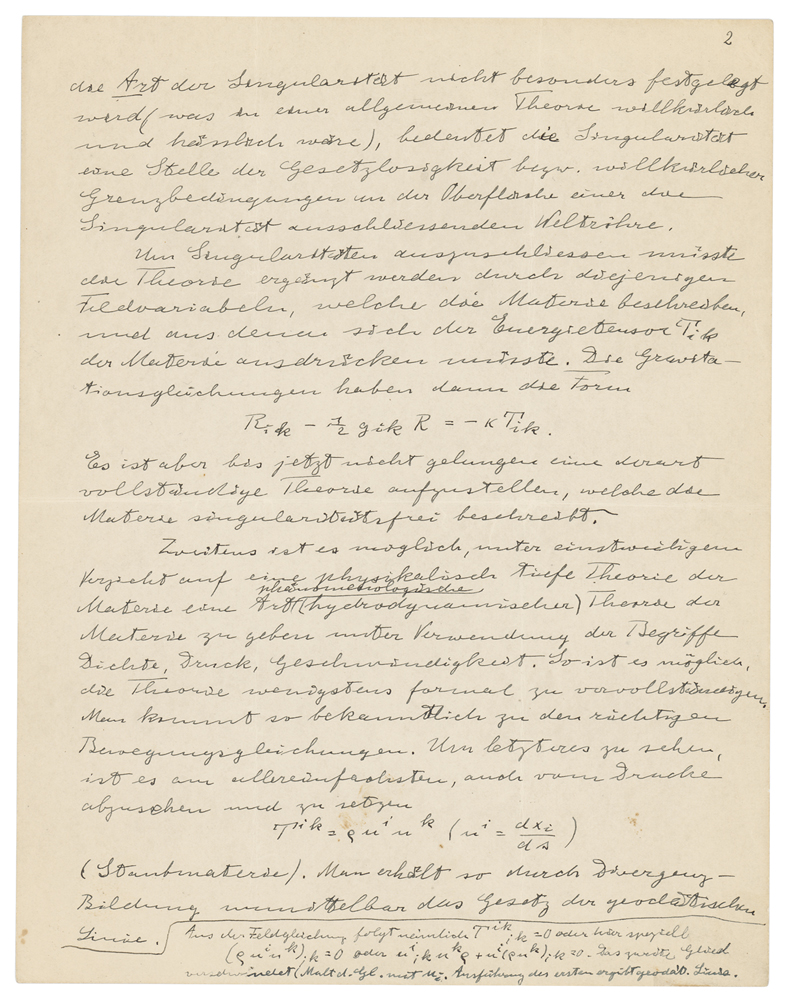 2
die Art der Singularität nicht besonders festgelegt
wird (was in einer allgemeinen Theorie willkürlich
und hässlich wäre), bedeutet die Singularität
eine Stelle der Gesetzlosigkeit bezw. willkürlicher
Grenzbedingungen an der Oberfläche einer die
Singularität ausschliessenden Weltröhre.
Um Singularitäten auszuschliessen müsste
die Theorie ergänzt werden durch diejenigen
Feldvariabeln, welche die Materie beschreiben,
und aus denen sich der Energietensor Tik
der Materie ausdrücken müsste. Die Gravita-
tionsgleichungen haben dann die Form
Rik - 1/2 gik R = - κ Tik.
Es ist aber bis jetzt nicht gelungen eine derart
vollständige Theorie aufzustellen, welche die
Materie singularitätsfrei beschreibt.
Zweitens ist es möglich, unter einstweiligem
Verzicht auf eine physikalisch tiefe Theorie der
phänomenologische
Materie eine Art (hydrodynamischer) Theorie der
Materie zu geben unter Verwendung der Begriffe
Dichte, Druck, Geschwindigkeit. So ist es möglich,
die Theorie wenigstens formal zu vervollständigen.
Man kommt so bekanntlich zu den richtigen
Bewegungsgleichungen. Um letzteres zu sehen,
ist es am allereinfachsten, auch vom Drucke
abzusehen und zu setzen
T^ik = ϱ u^i u^k (u^i = dxi/ds)
(Staubmaterie). Man erhält so durch Divergenz-
Bildung unmittelbar das Gesetz der geodätischen
Linie. Aus der Feldgleichung folgt nämlich T^ik;k = 0 oder hier speziell
(ϱ u^i u^k);k = 0 oder u^i;k u^k ϱ + u^i (ϱ u^k);k = 0. Das zweite Glied
verschwindet (Mult. d. Gl. mit ui. Ausführung des ersten ergibt geodät. Linie.